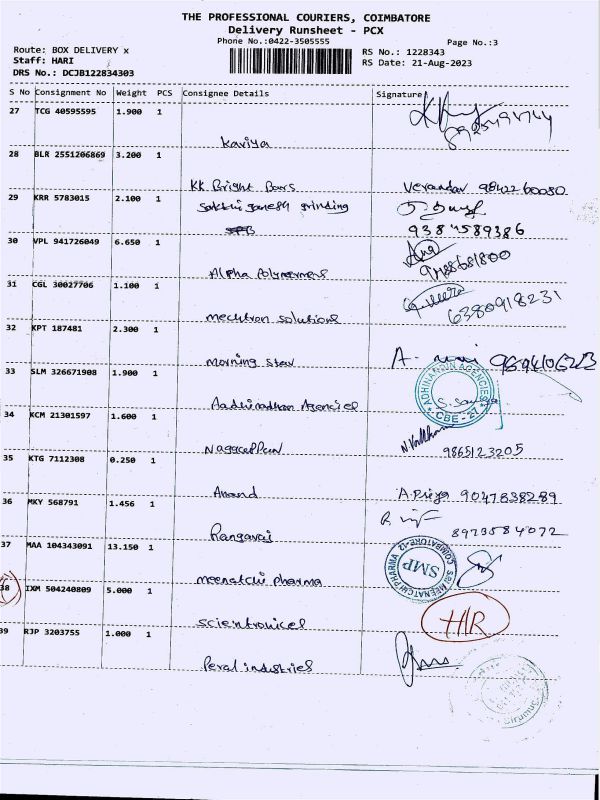 THE PROFESSIONAL COURIERS, COIMBATORE
Delivery Runsheet - PCX
Phone No.:0422-3505555
Page No.:3
Route: BOX DELIVERY x
RS No.: 1228343
Staff: HARI
RS Date: 21-Aug-2023
DRS No.: DCJB122834303
S No Consignment No Weight PCS Consignee Details Signature
27 TCG 40595595 1.900 1
Kaviya
28 BLR 2551206869 3.200 1
KK Bright Bars 9842260080
29 KRR 5783015 2.100 1
grinding
9384589386
30 VPL 941726049 6.650 1
Alpha
9788681800
31 CGL 30027706 1.100 1
mechtron solutions
6380918231
32 KPT 187481 2.300 1
morning star
33 SLM 326671908 1.900 1
ADHINADHAN AGENCIES
CBE - 27
Aadhinadhan Agencies
34 KCM 21301597 1.600 1
9865123205
35 KTG 7112308 0.250 1
Anand A.Priya 9047838289
36 MKY 568791 1.456 1
Rangaraj 8973584072
37 MAA 104343091 13.150 1
SRI MEENATCHI PHARMA
COIMBATORE-12
SMP
meenatchi pharma
38 IXM 504240809 5.000 1
scientronics H/R
39 RJP 3203755 1.000 1
Peral industries